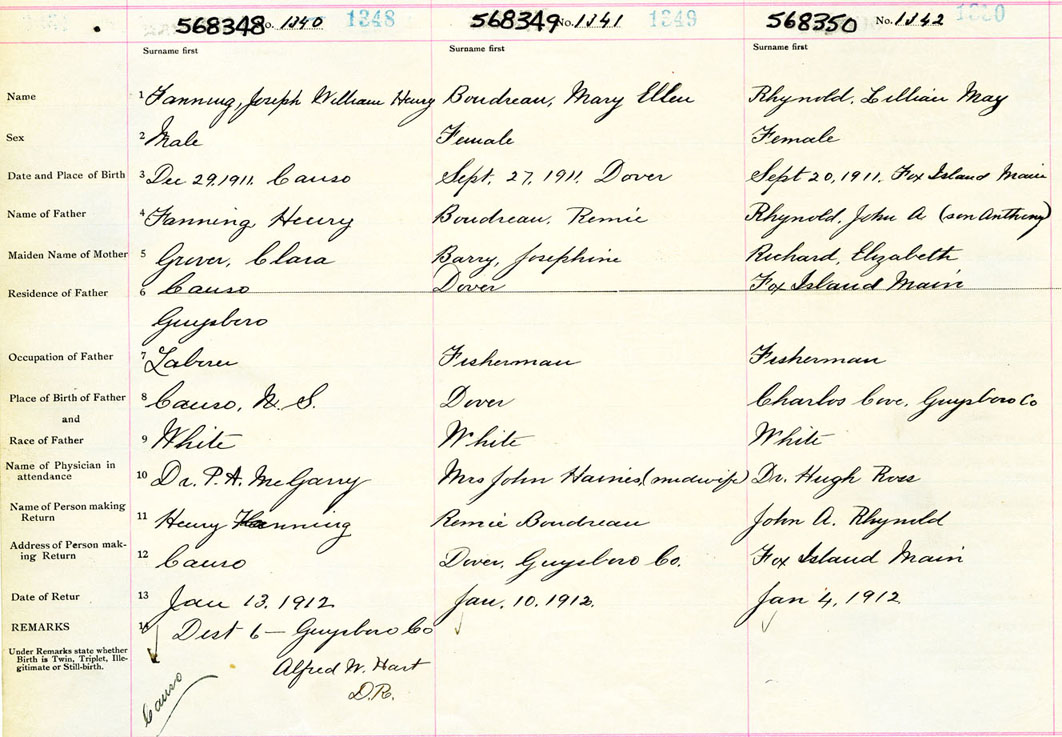 568348 No. 1340 1348 568349 No. 1341 1349 568350 No. 1342
Surname first Surname first Surname first
Name 1 Fanning, Joseph William Henry Boudreau, Mary Ellen Rhynold, Lillian May
Sex 2 Male Female Female
Date and Place of Birth 3 Dec 29, 1911. Canso Sept. 27, 1911. Dover Sept 20, 1911. Fox Island Main
Name of Father 4 Fanning, Henry Boudreau, Remie Rhynold, John A (son Anthony)
Maiden Name of Mother 5 Grover, Clara Barry, Josephine Richard, Elizabeth
Residence of Father 6 Canso Dover Fox Island Main
Guysboro
Occupation of Father 7 Laborer Fisherman Fisherman
Place of Birth of Father 8 Canso, N. S. Dover Charlos Cove, Guysboro Co
and
Race of Father 9 White White White
Name of Physician in
attendance 10 Dr. P. A. McGarry Mrs John Haines, (midwife) Dr. Hugh Ross
Name of Person making
Return 11 Henry Fanning Remie Boudreau John A. Rhynold
Address of Person mak-
ing Return 12 Canso Dover, Guysboro Co. Fox Island Main
Date of Retur 13 Jan 13, 1912 Jan. 10. 1912. Jan 4, 1912
REMARKS 14 Dist 6 — Guysboro Co
Under Remarks state whether
Birth is Twin, Triplet, Ille-
gitimate or Still-birth.
Alfred W. Hart
D.R.
Canso